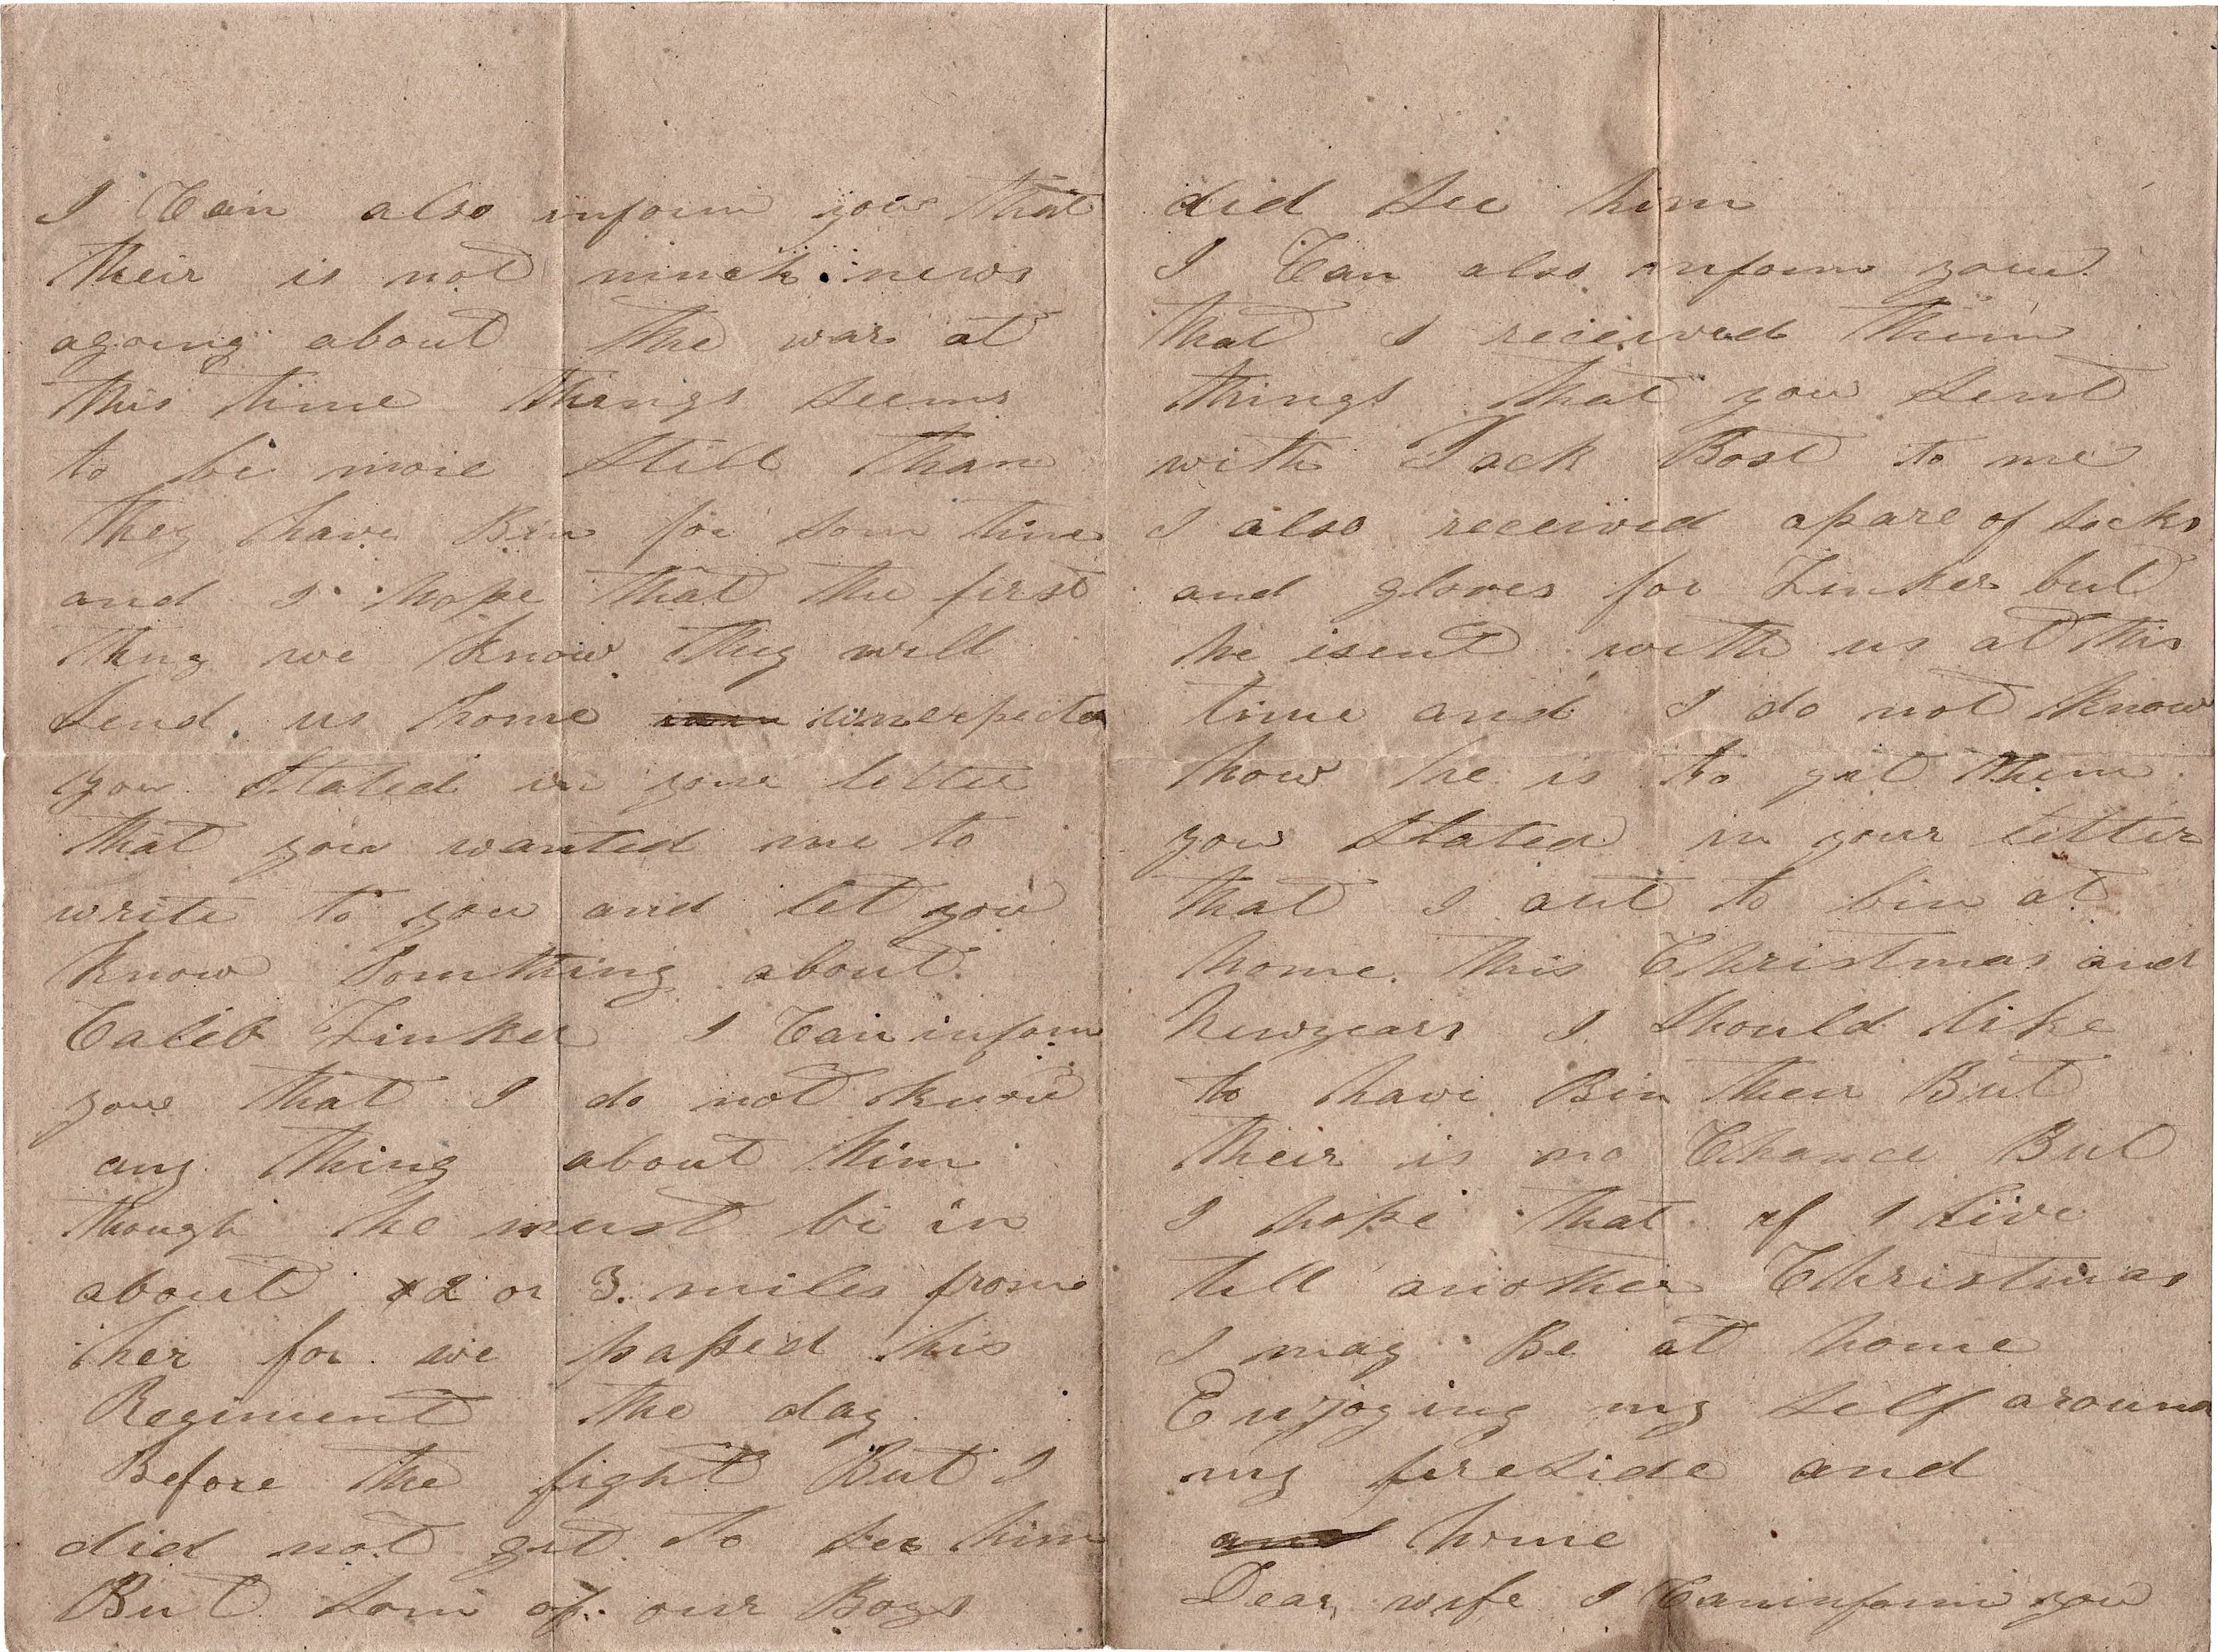 I Can also inform you that
their is not much news
agoing about the war at
this time things seems
to be more still than
they have Bin for som time
and I hope that the first
thing we know they will
send us home unexpected
you stated in your letter
that you wanted me to
write to you and let you
know somthing about
Caleb Linker I Can inform
you that I do not know
any thing about him
though he must be in
about 2 or 3 miles from
her for we passed his
Regiment the day
Before the fight But I
did not get to see him
But som of our Boys
did see him
I Can also inform you
that I received them
things that you sent
with Jack Bost to me
I also received apare of socks
and gloves for Linker but
he isent with us at this
time and I do not know
how he is to git them
you stated in your letter
that I aut to bin at
home this Christmas and
Newyears I should like
to have Bin their But
their is no Chance But
I hope that if I live
till another Christmas
I may Be at home
Enjoying my self around
my fireside and
and home
Dear wife I Can inform you